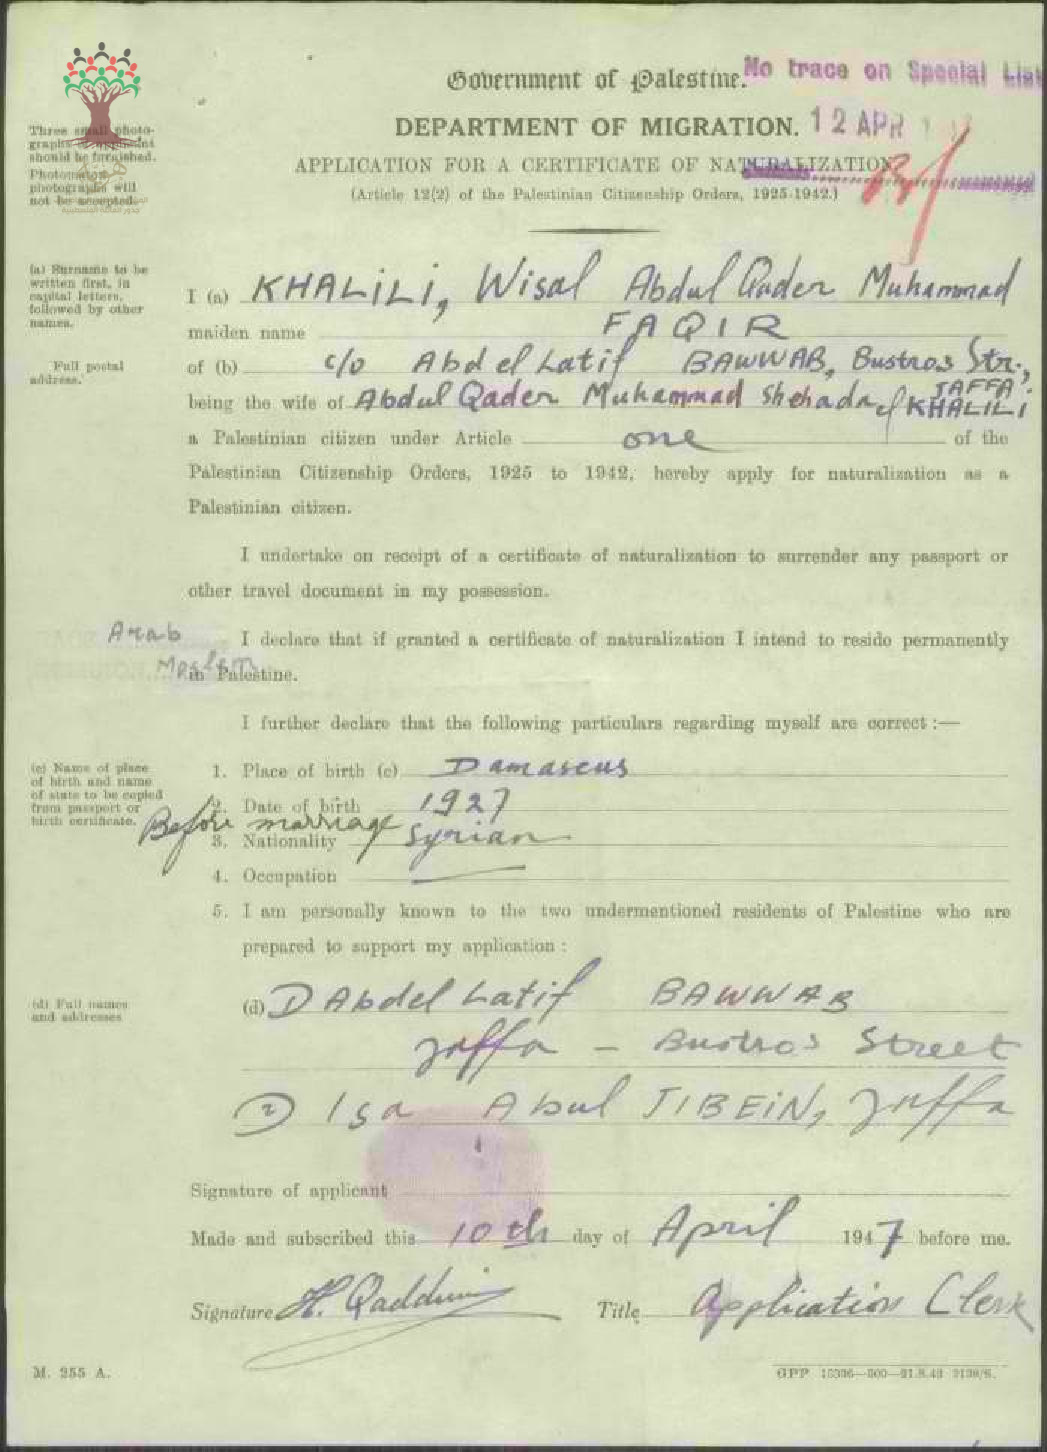 Government of Palestine.
No trace on Special List
DEPARTMENT OF MIGRATION.
12 APR
APPLICATION FOR A CERTIFICATE OF NATURALIZATION
(Article 12(2) of the Palestinian Citizenship Orders, 1925-1942.)
Three small photo-
graphs of applicant
should be furnished.
Photomaton
photographs will
not be accepted.
(a) Surname to be
written first, in
capital letters,
followed by other
names.
I (a) KHALILI, Wisal Abdul Qader Muhammad
maiden name FAQIR
Full postal
address.
of (b) c/o Abdel Latif BAWWAB, Bustros Str., JAFFA
being the wife of Abdul Qader Muhammad Shehada KHALILI
a Palestinian citizen under Article one of the
Palestinian Citizenship Orders, 1925 to 1942, hereby apply for naturalization as a
Palestinian citizen.
I undertake on receipt of a certificate of naturalization to surrender any passport or
other travel document in my possession.
Arab
Moslem
I declare that if granted a certificate of naturalization I intend to reside permanently
in Palestine.
I further declare that the following particulars regarding myself are correct :—
(c) Name of place
of birth and name
of state to be copied
from passport or
birth certificate.
1. Place of birth (c) Damascus
2. Date of birth 1927
Before marriage
3. Nationality Syrian
4. Occupation —
5. I am personally known to the two undermentioned residents of Palestine who are
prepared to support my application :
(d) Full names
and addresses
(d) 1) Abdel Latif BAWWAB
Jaffa - Bustros Street
2) Isa Abul JIBEIN, Jaffa
Signature of applicant
Made and subscribed this 10th day of April 1947 before me.
Signature H. Qaddumi Title Application Clerk
M. 255 A.